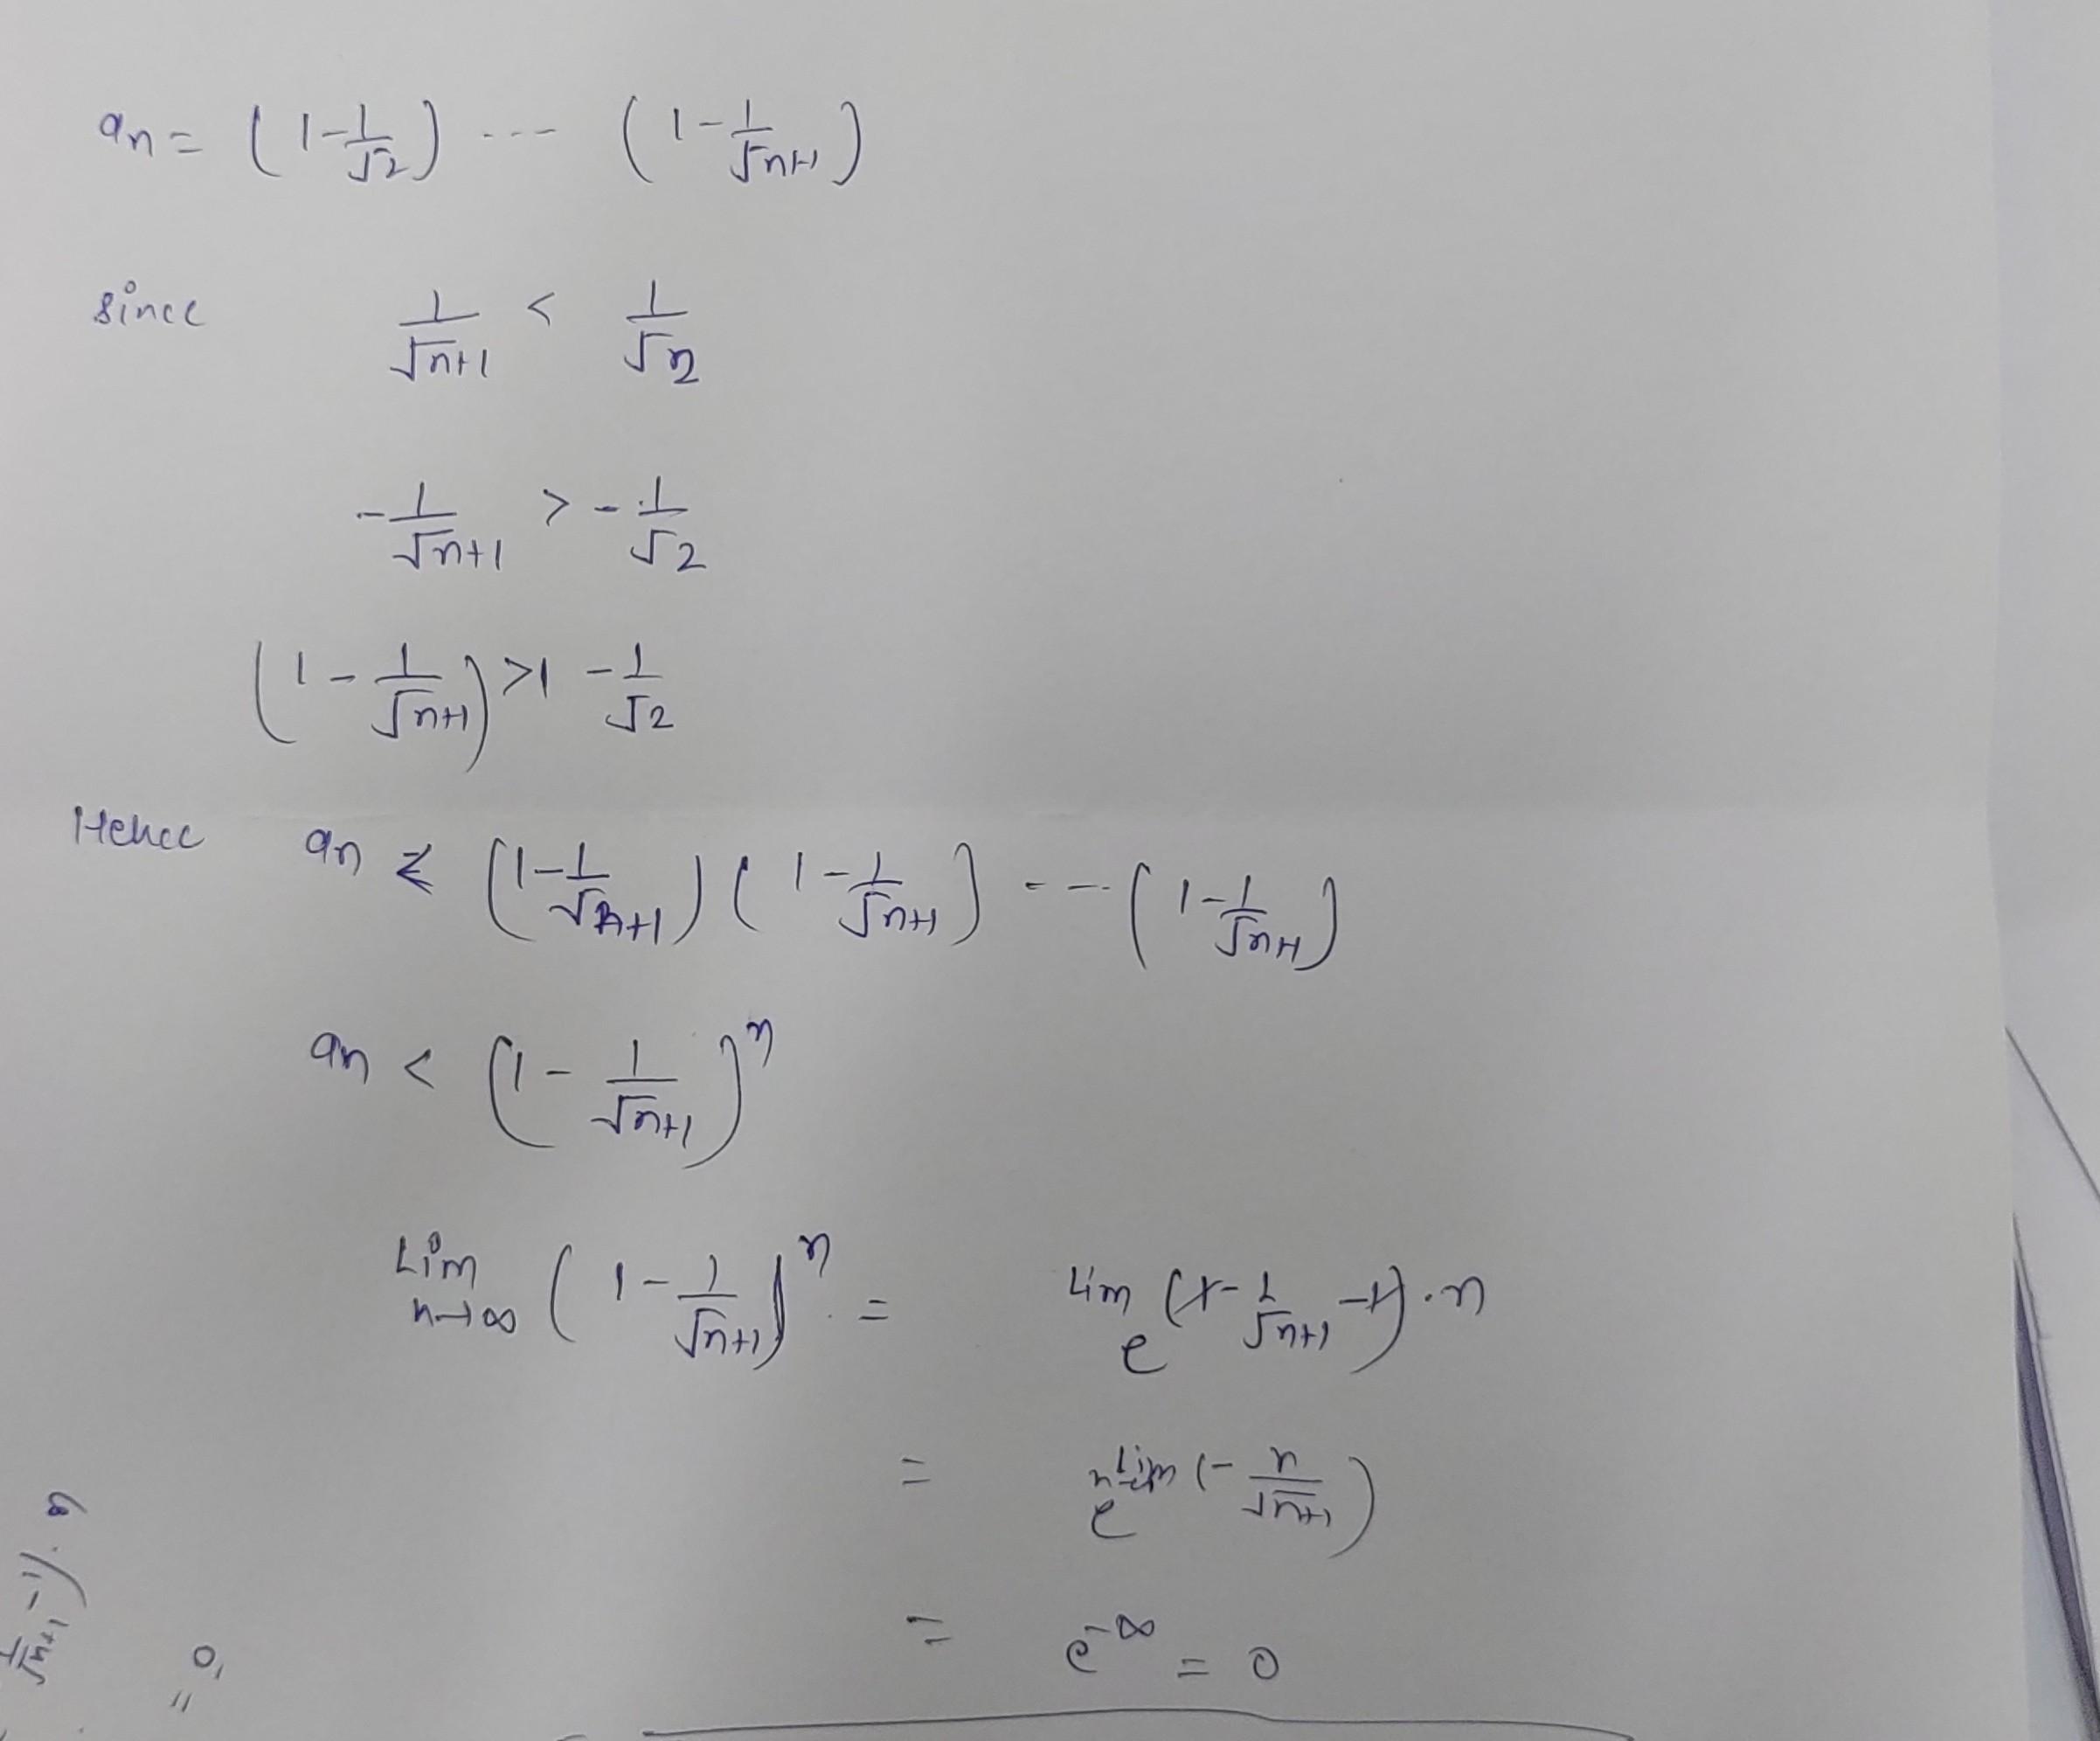 an = (1 - 1/√2) --- (1 - 1/√n+1)
since 1/√n+1 < 1/√2
- 1/√n+1 > - 1/√2
(1 - 1/√n+1) > 1 - 1/√2
Hence an < (1 - 1/√n+1) (1 - 1/√n+1) --- (1 - 1/√n+1)
an < (1 - 1/√n+1)^n
Lim n→∞ (1 - 1/√n+1)^n = e^Lim (1 - 1/√n+1 - 1).n
= e^Lim (- n/√n+1)
= e^-∞ = 0
1/√n+1 - 1).n
= 0,